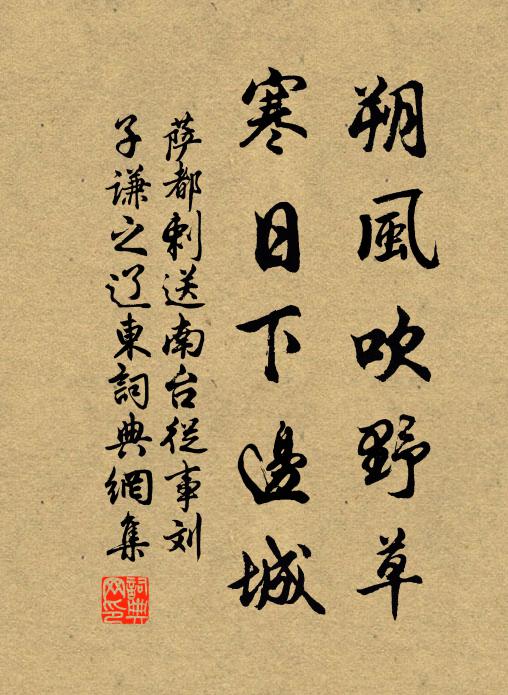 朔風吹野草
寒日下邊城
薩都剌送南台從事刘
子谦之辽東詞典網集
詞典网印